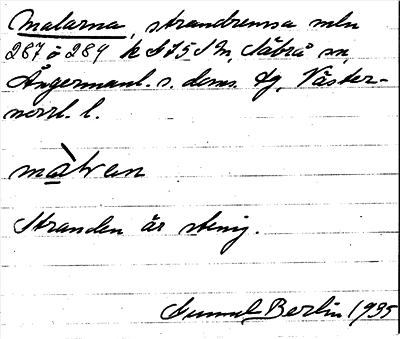 Malarna, strandremsa mln
287 o 289 k S15 S m, Säbrå sn,
Ångermanl. s. doms. tg, Väster-
norrl. l.
Stranden är stenig.
Gunnel Berlin 1935